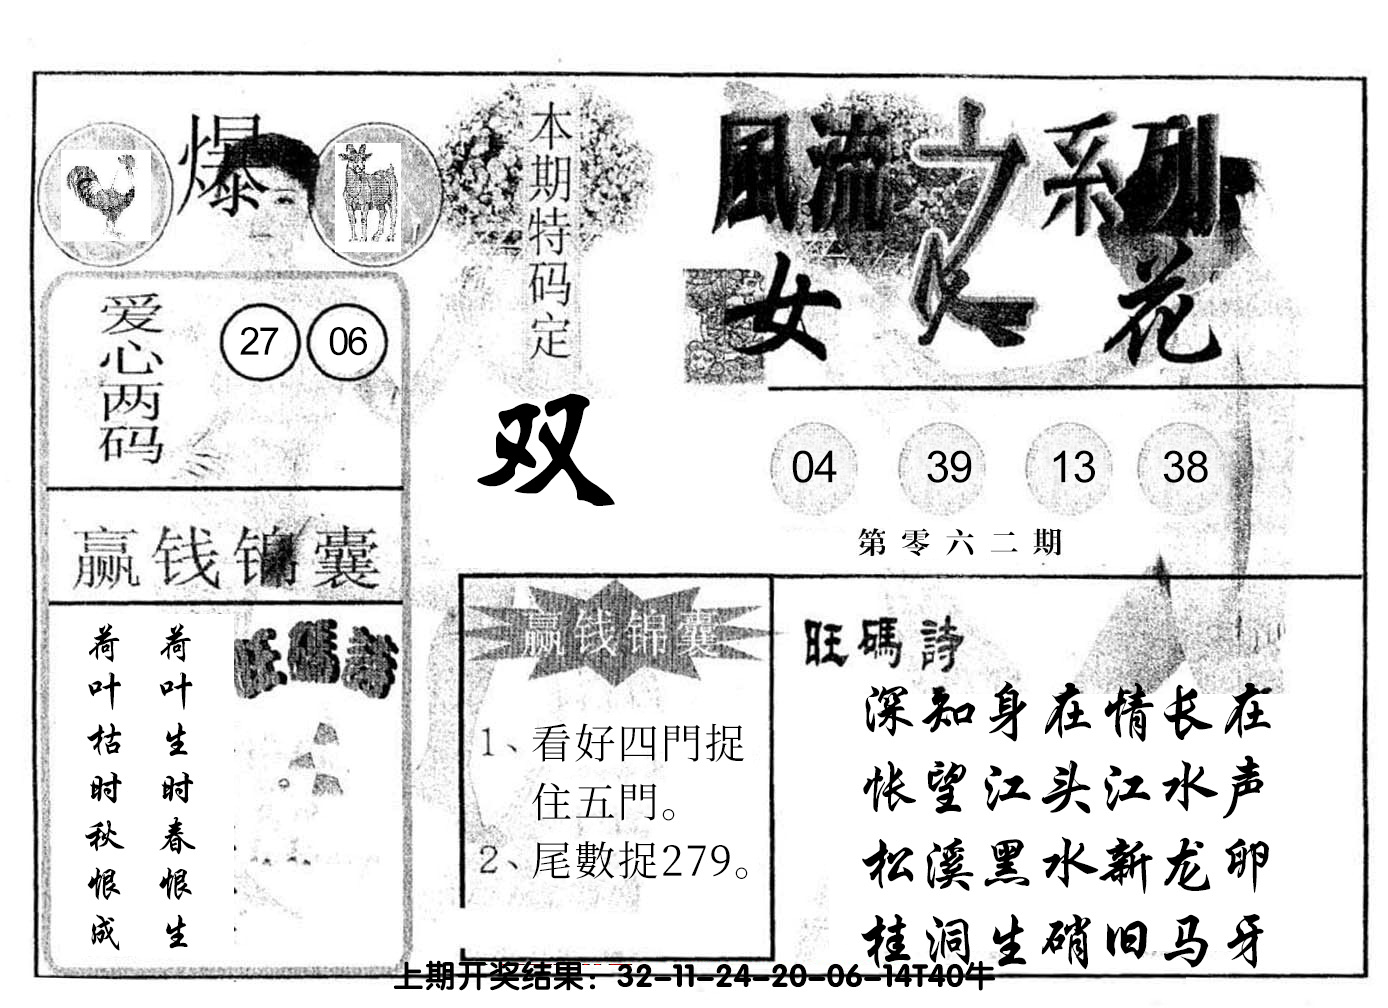 爆
本期特码定
双
風流之系列
女人花
爱心两码
27 06
04 39 13 38
第零六二期
赢钱锦囊
荷叶生时春恨生
荷叶枯时秋恨成
旺碼詩
赢钱锦囊
1、看好四門捉
住五門。
2、尾數捉279。
旺碼詩
深知身在情长在
怅望江头江水声
松溪黑水新龙卵
桂洞生硝旧马牙
上期开奖结果：32-11-24-20-06-14T40牛